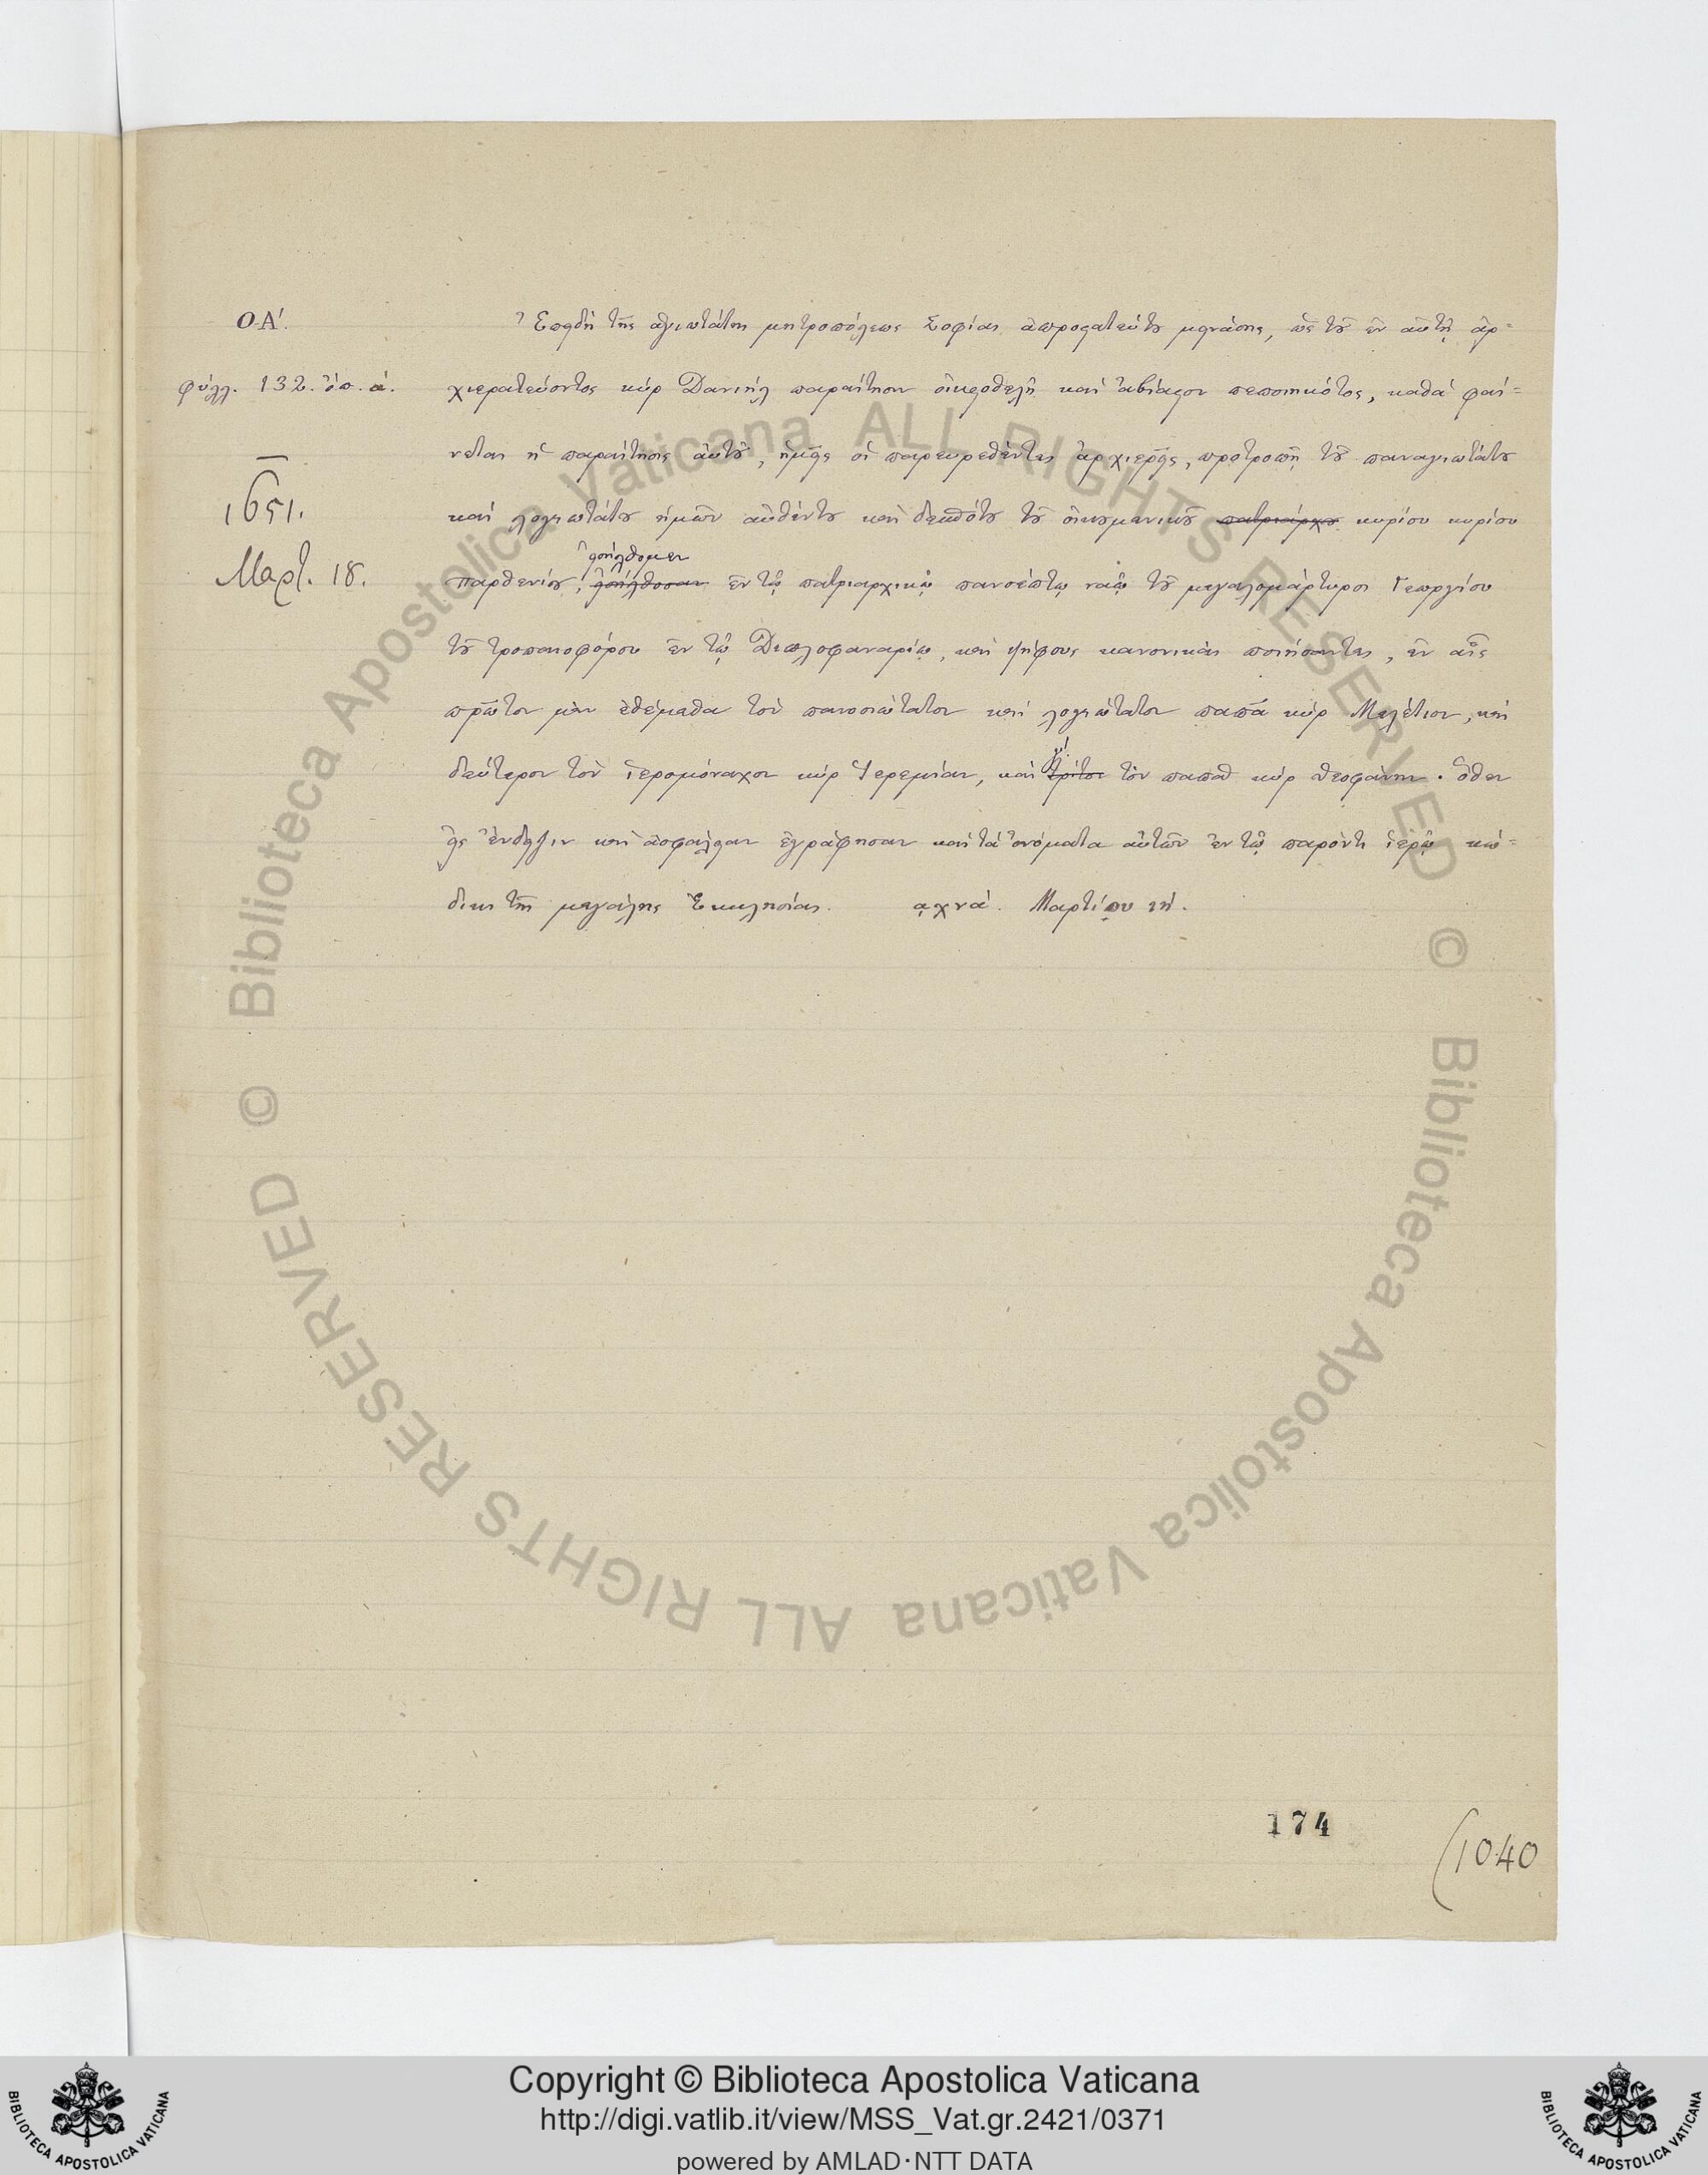 ΟΑ΄.
φύλλ. 132. ὄπ. α.
1651.
Μαρτ. 18.
Ἐπειδὴ τῆς ἁγιωτάτης μητροπόλεως Σοφίας ἀπροστατεύτου μεινάσης, ὡς τοῦ ἐν αὐτῇ ἀρ=
χιερατεύοντος κὺρ Δανιὴλ παραίτησιν οἰκειοθελῆ καὶ ἀβίαστον πεποιηκότος, καθὰ φαί=
νεται ἡ παραίτησις αὐτοῦ, ἡμεῖς οἱ παρευρεθέντες ἀρχιερεῖς, προτροπῇ τοῦ παναγιωτάτου
καὶ λογιωτάτου ἡμῶν αὐθέντου καὶ δεσπότου τοῦ οἰκουμενικοῦ πατριάρχου κυρίου κυρίου
εἰσήλθομεν
Παρθενίου, εἰσήλθοσαν ἐν τῷ πατριαρχικῷ πανσέπτῳ ναῷ τοῦ μεγαλομάρτυρος Γεωργίου
τοῦ τροπαιοφόρου ἐν τῷ Διπλοφαναρίῳ, καὶ ψήφους κανονικὰς ποιήσαντες, ἐν αἷς
πρῶτον μὲν ἐθέμεθα τὸν πανοσιώτατον καὶ λογιώτατον παπᾶ κὺρ Μελέτιον, καὶ
γ΄.
δεύτερον τὸν ἱερομόναχον κὺρ Ἱερεμίαν, καὶ τρίτον τὸν παπᾶ κὺρ Θεοφάνην. Ὅθεν
εἰς ἔνδειξιν καὶ ἀσφάλειαν ἐγράφησαν καὶ τὰ ὀνόματα αὐτῶν ἐν τῷ παρόντι ἱερῷ κώ=
δικι τῆς μεγάλης Ἐκκλησίας. ͵αχνα΄. Μαρτίου ιη΄.
174
(1040
© Biblioteca Apostolica Vaticana ALL RIGHTS RESERVED
© Biblioteca Apostolica Vaticana ALL RIGHTS RESERVED
Copyright © Biblioteca Apostolica Vaticana
http://digi.vatlib.it/view/MSS_Vat.gr.2421/0371
powered by AMLAD·NTT DATA
BIBLIOTECA APOSTOLICA VATICANA
BIBLIOTECA APOSTOLICA VATICANA